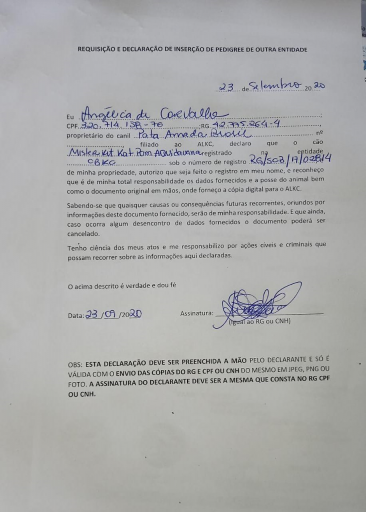 REQUISIÇÃO E DECLARAÇÃO DE INSERÇÃO DE PEDIGREE DE OUTRA ENTIDADE
23 de Setembro 2020
Eu Angélica de Carvalho
CPF RG
proprietário do canil Pata Amada Brasil nº
filiado ao ALKC, declaro que o cão
Mister Kit Kat Pom registrado na entidade
CBKG sob o número de registro RG/SCJ/19/02814
de minha propriedade, autorizo que seja feito o registro em meu nome, e reconheço
que é de minha total responsabilidade os dados fornecidos e a posse do animal bem
como o documento original em mãos, onde forneço a cópia digital para o ALKC.
Sabendo-se que quaisquer causas ou consequências futuras recorrentes, oriundos por
informações deste documento fornecido, serão de minha responsabilidade. E que ainda,
caso ocorra algum desencontro de dados fornecidos o documento poderá ser
cancelado.
Tenho ciência dos meus atos e me responsabilizo por ações cíveis e criminais que
possam recorrer sobre as informações aqui declaradas.
O acima descrito é verdade e dou fé
Data: 23/09/2020 Assinatura:
(Igual ao RG ou CNH)
OBS: ESTA DECLARAÇÃO DEVE SER PREENCHIDA A MÃO PELO DECLARANTE E SÓ É
VÁLIDA COM O ENVIO DAS CÓPIAS DO RG E CPF OU CNH DO MESMO EM JPEG, PNG OU
FOTO. A ASSINATURA DO DECLARANTE DEVE SER A MESMA QUE CONSTA NO RG CPF
OU CNH.